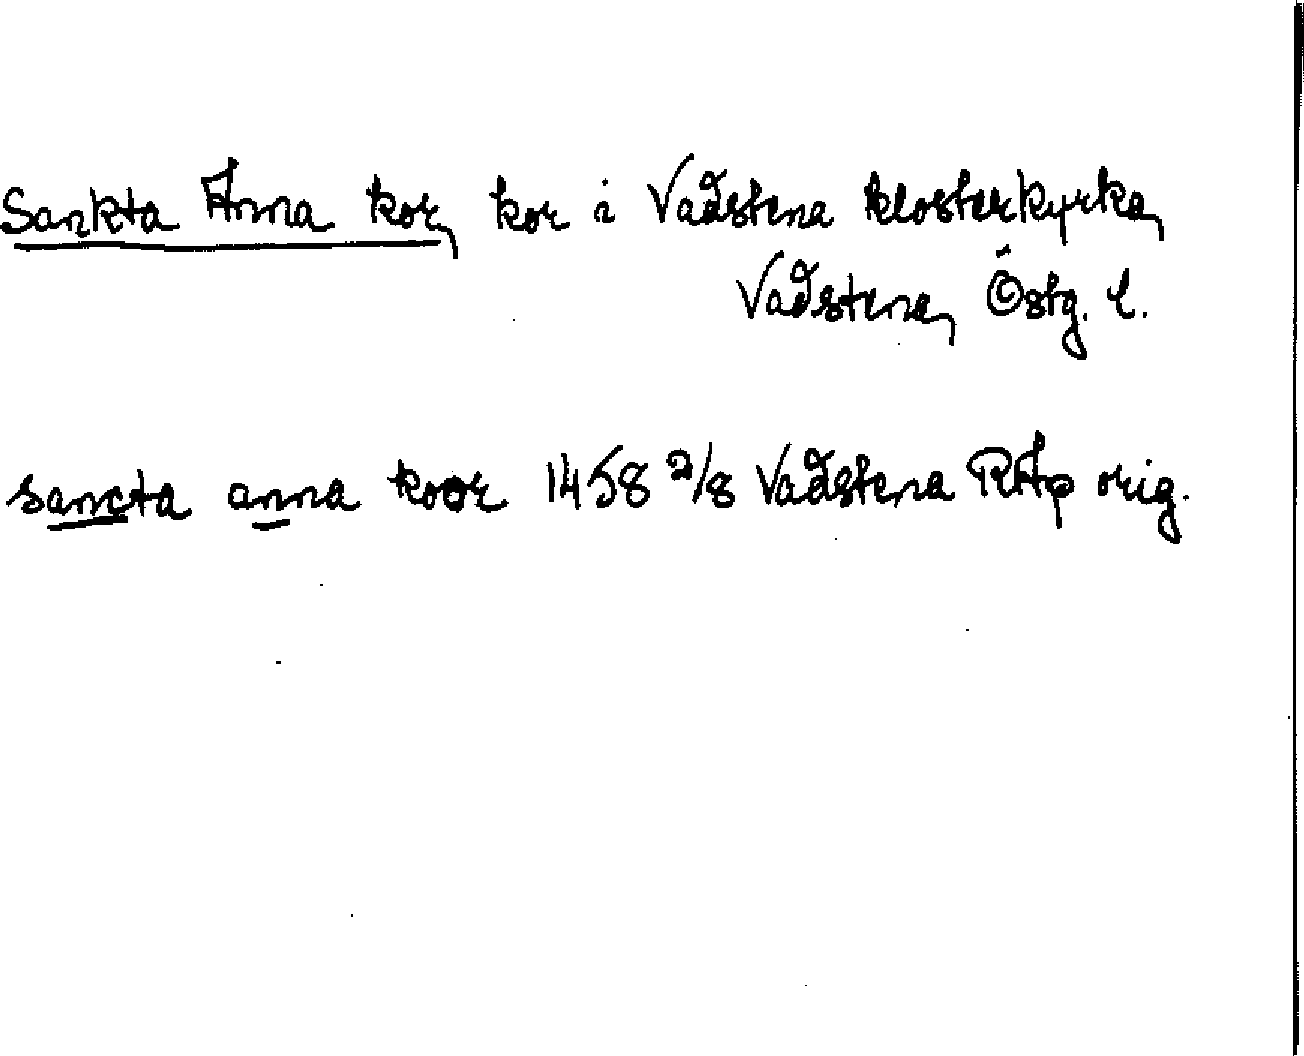 Sankta Anna kor, kor i Vadstena klosterkyrka,
Vadstena, Östg. l.
sancta anna koor 1458 2/8 Vadstena RAp orig.